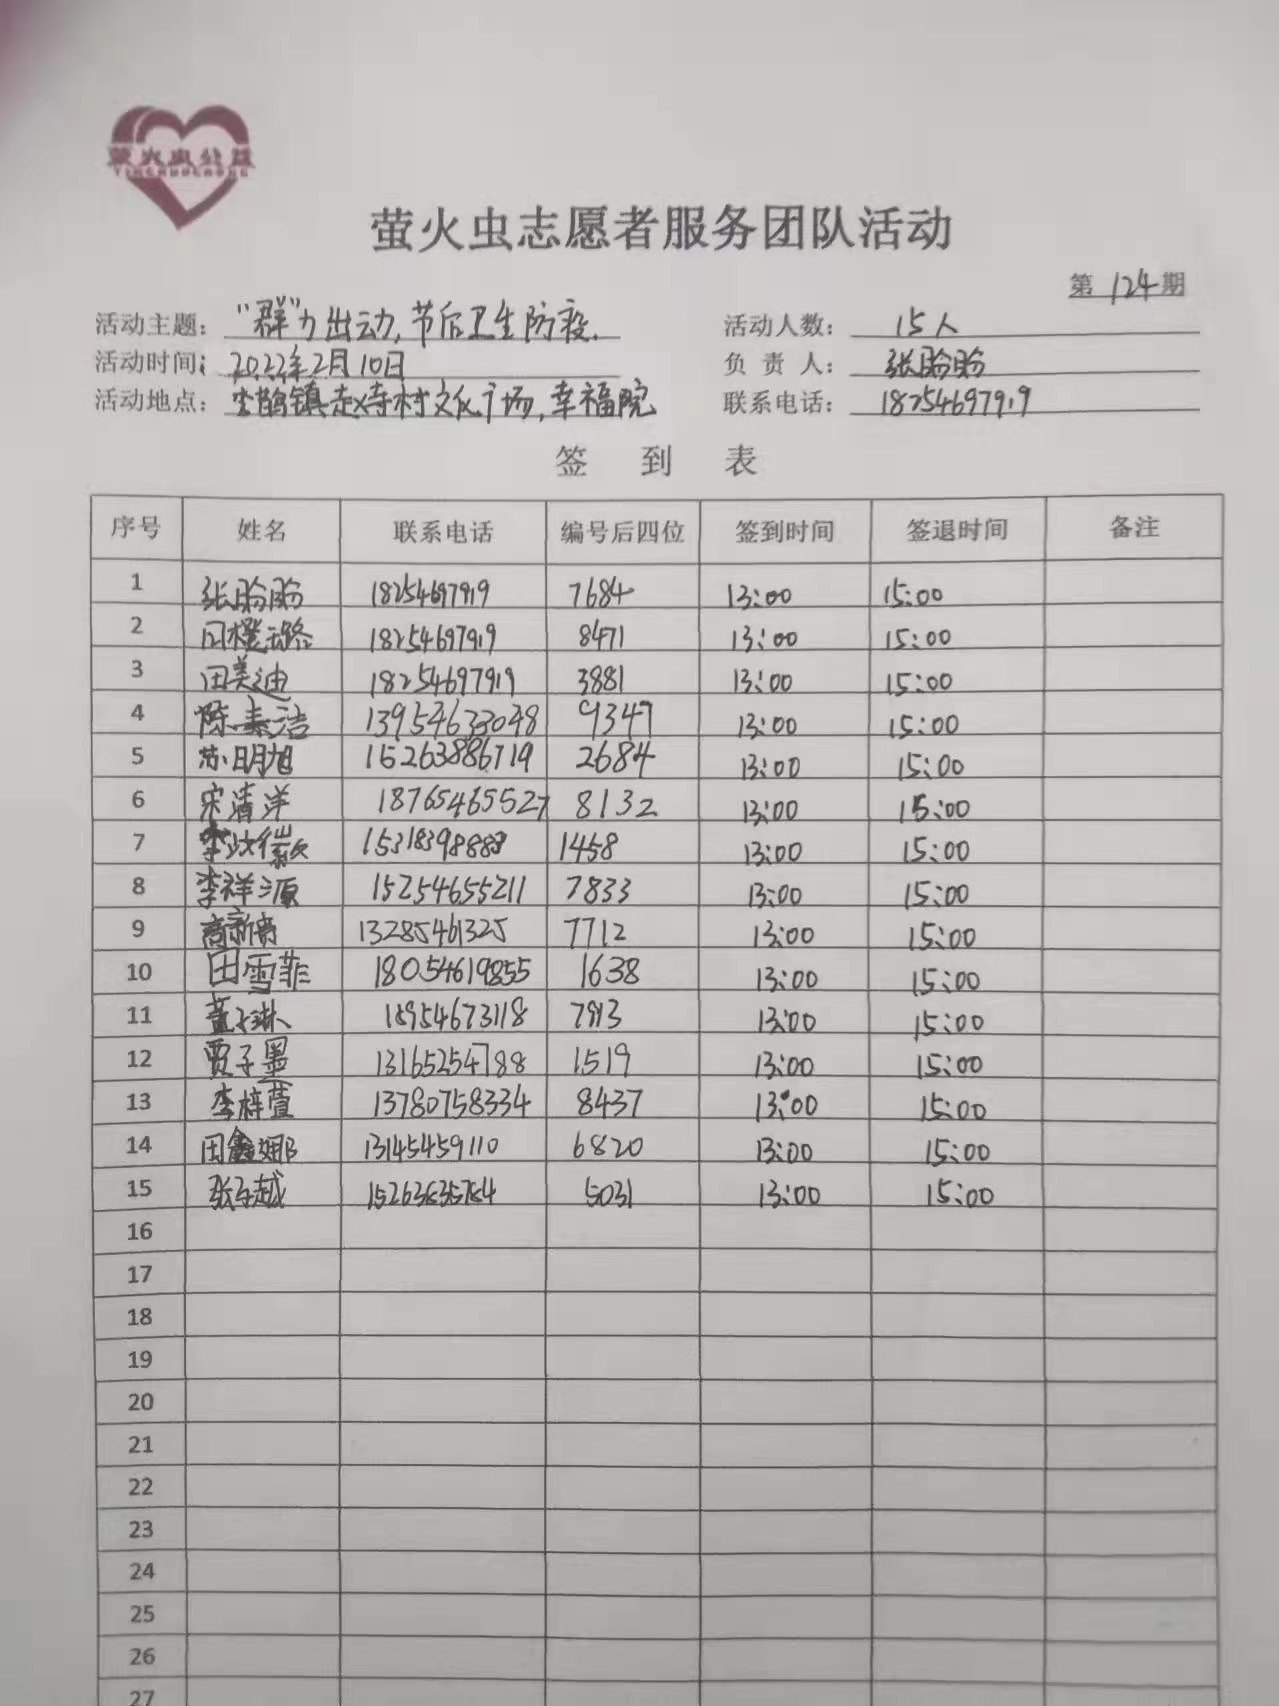 萤火虫公益
YINGHUOCHONG
萤火虫志愿者服务团队活动
第 124 期
活动主题： “群”力出动,节后卫生防疫. 活动人数： 15人
活动时间： 2022年2月10日 负 责 人： 张盼盼
活动地点： 李鹊镇赵寺村文化广场,幸福院 联系电话： 18254697919
签 到 表
序号 姓名 联系电话 编号后四位 签到时间 签退时间 备注
1 张盼盼 18254697919 7684 13:00 15:00
2 18254697919 8471 13:00 15:00
3 田美迪 18254697919 3881 13:00 15:00
4 13954633048 9347 13:00 15:00
5 苏明旭 15263886719 2684 13:00 15:00
6 宋清洋 18765465527 8132 13:00 15:00
7 15318398888 1458 13:00 15:00
8 李祥源 15254655211 7833 13:00 15:00
9 13285461325 7712 13:00 15:00
10 田雪菲 18054619855 1638 13:00 15:00
11 董子琳 18954673118 7813 13:00 15:00
12 贾子墨 13165254788 1519 13:00 15:00
13 李梓萱 13780758334 8437 13:00 15:00
14 田鑫娜 13145459110 6820 13:00 15:00
15 张子越 5031 13:00 15:00
16
17
18
19
20
21
22
23
24
25
26
27